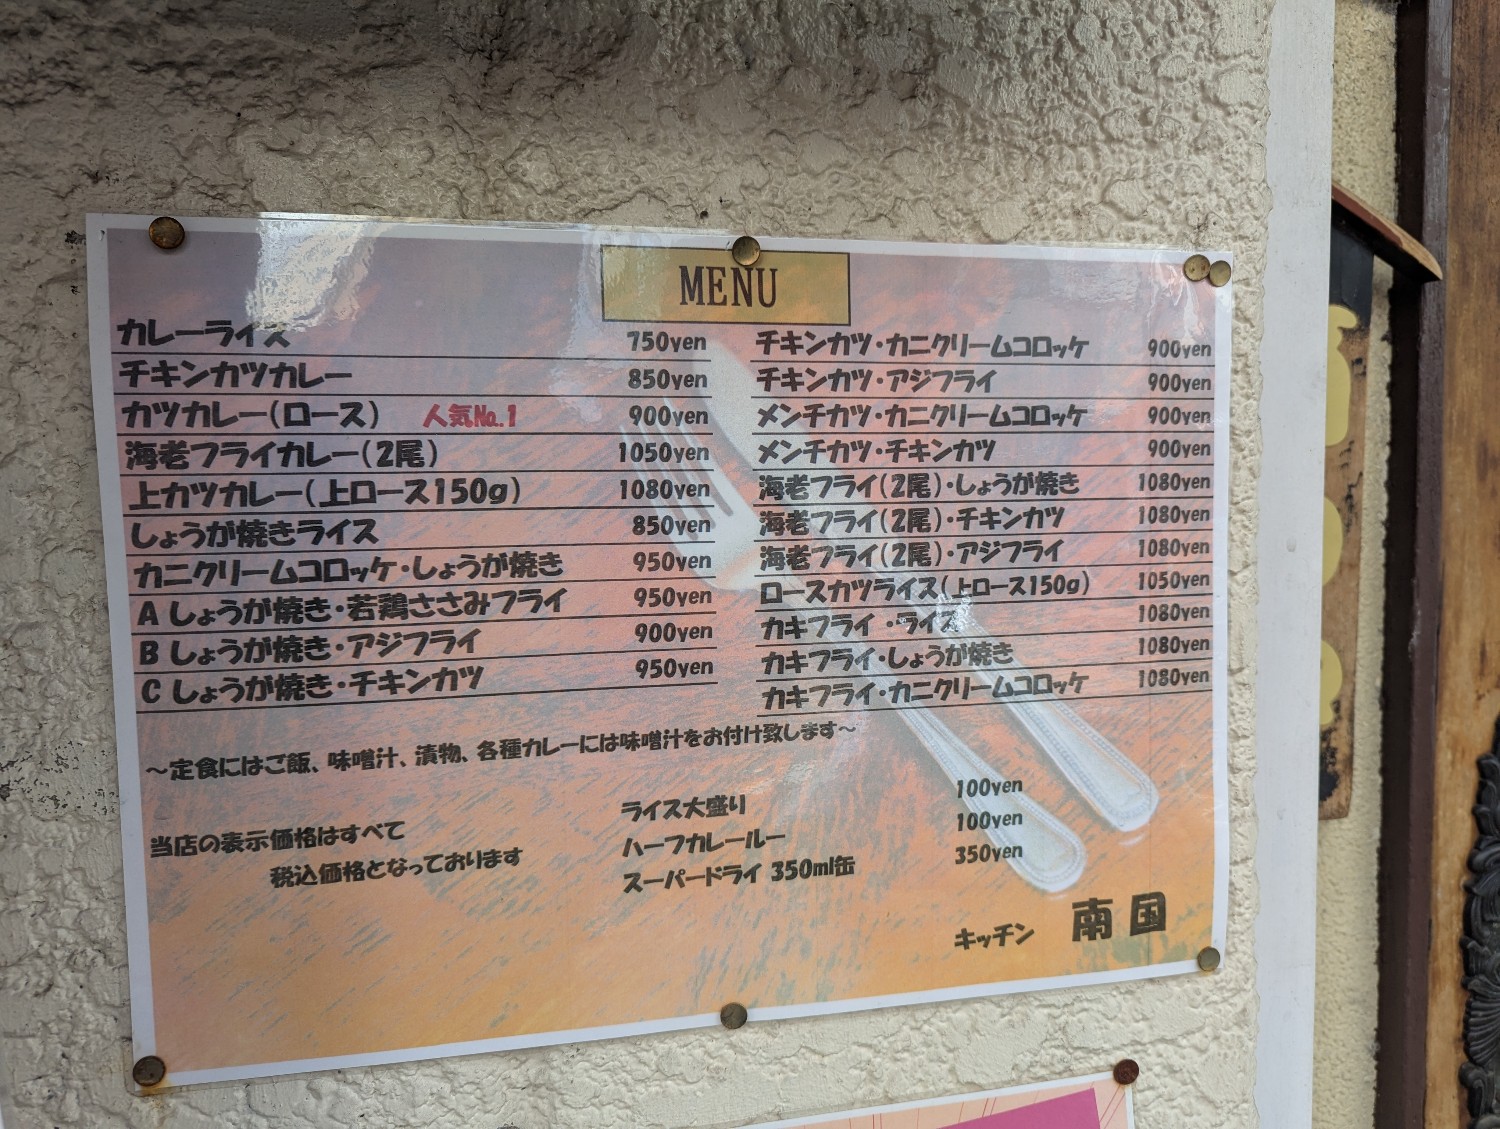 MENU
カレーライス 750yen
チキンカツカレー 850yen
カツカレー(ロース) 人気No.1 900yen
海老フライカレー(2尾) 1050yen
上カツカレー(上ロース150g) 1080yen
しょうが焼きライス 850yen
カニクリームコロッケ・しょうが焼き 950yen
A しょうが焼き・若鶏ささみフライ 950yen
B しょうが焼き・アジフライ 900yen
C しょうが焼き・チキンカツ 950yen
チキンカツ・カニクリームコロッケ 900yen
チキンカツ・アジフライ 900yen
メンチカツ・カニクリームコロッケ 900yen
メンチカツ・チキンカツ 900yen
海老フライ(2尾)・しょうが焼き 1080yen
海老フライ(2尾)・チキンカツ 1080yen
海老フライ(2尾)・アジフライ 1080yen
ロースカツライス(上ロース150g) 1050yen
カキフライ・ライス 1080yen
カキフライ・しょうが焼き 1080yen
カキフライ・カニクリームコロッケ 1080yen
～定食にはご飯、味噌汁、漬物、各種カレーには味噌汁をお付け致します～
当店の表示価格はすべて
税込価格となっております
ライス大盛り 100yen
ハーフカレールー 100yen
スーパードライ 350ml缶 350yen
キッチン 南国